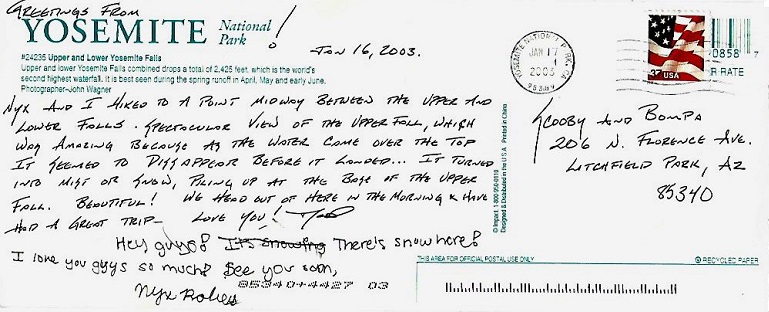 GREETINGS FROM
YOSEMITE National Park !
JAN 16, 2003.
#24235 Upper and Lower Yosemite Falls
Upper and lower Yosemite Falls combined drops a total of 2,425 feet, which is the world's
second highest waterfall. It is best seen during the spring runoff in April, May and early June.
Photographer-John Wagner
NYX AND I HIKED TO A POINT MIDWAY BETWEEN THE UPPER AND
LOWER FALLS. SPECTACULAR VIEW OF THE UPPER FALL, WHICH
WAS AMAZING BECAUSE AS THE WATER COME OVER THE TOP
IT SEEMED TO DISSAPPEAR BEFORE IT LANDED... IT TURNED
INTO MIST OR SNOW, PILING UP AT THE BASE OF THE UPPER
FALL. BEAUTIFUL! WE HEAD OUT OF HERE IN THE MORNING & HAVE
HAD A GREAT TRIP- LOVE YOU!
Hey guys! It's snowing There's snow here!
I love you guys so much! See you soon,
Nyx
85340+4427 03
© Impact 1-800-950-0110
Designed & Distributed in the U.S.A. Printed in China
YOSEMITE NATIONAL PARK, CA
JAN 17
2003
37 USA
0858 7
R RATE
SCOOBY AND BOMPA
206 N. FLORENCE AVE.
LITCHFIELD PARK, AZ
85340
THIS AREA FOR OFFICIAL POSTAL USE ONLY
RECYCLED PAPER